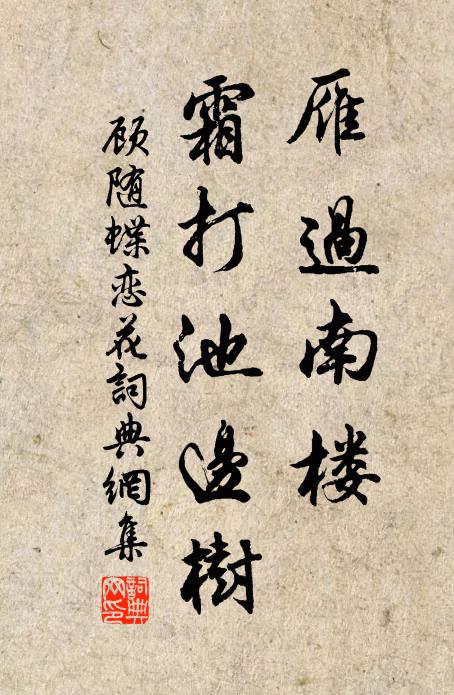 雁過南楼
霜打池邊樹
顾随蝶恋花詞典網集
詞典
网印